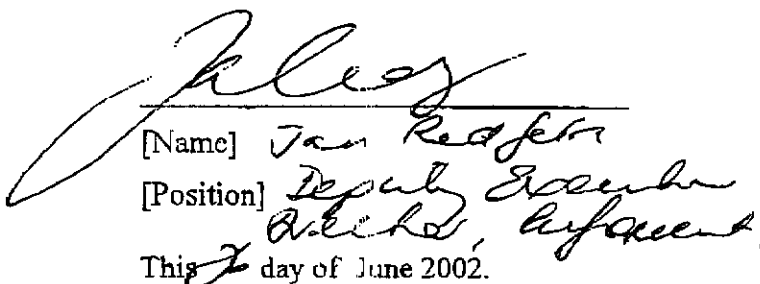 [Name] Jan Redfern
[Position] Deputy Executive
Director, Enforcement
This day of June 2002.